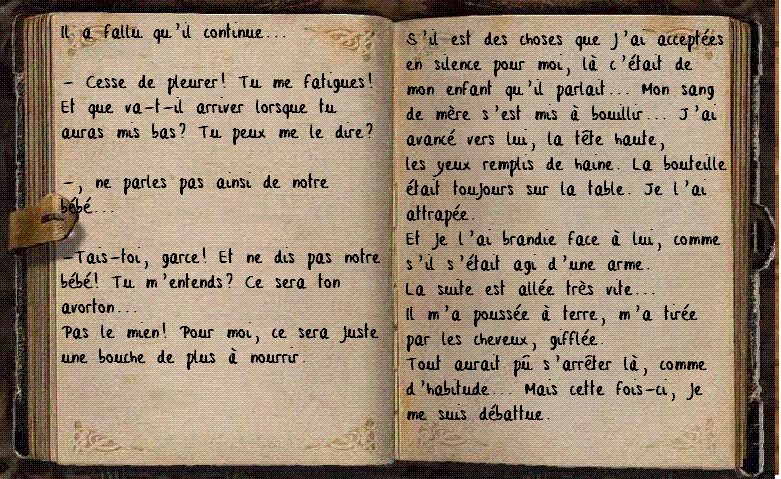 Il a fallu qu'il continue...
- Cesse de pleurer! Tu me fatigues!
Et que va-t-il arriver lorsque tu
auras mis bas? Tu peux me le dire?
-, ne parles pas ainsi de notre
bébé...
-Tais-toi, garce! Et ne dis pas notre
bébé! Tu m'entends? Ce sera ton
avorton...
Pas le mien! Pour moi, ce sera juste
une bouche de plus à nourrir.
S'il est des choses que j'ai acceptées
en silence pour moi, là c'était de
mon enfant qu'il parlait... Mon sang
de mère s'est mis à bouillir... J'ai
avancé vers lui, la tête haute,
les yeux remplis de haine. La bouteille
était toujours sur la table. Je l'ai
attrapée.
Et je l'ai brandie face à lui, comme
s'il s'était agi d'une arme.
La suite est allée très vite...
Il m'a poussée à terre, m'a tirée
par les cheveux, gifflée.
Tout aurait pû s'arrêter là, comme
d'habitude... Mais cette fois-ci, je
me suis débattue.